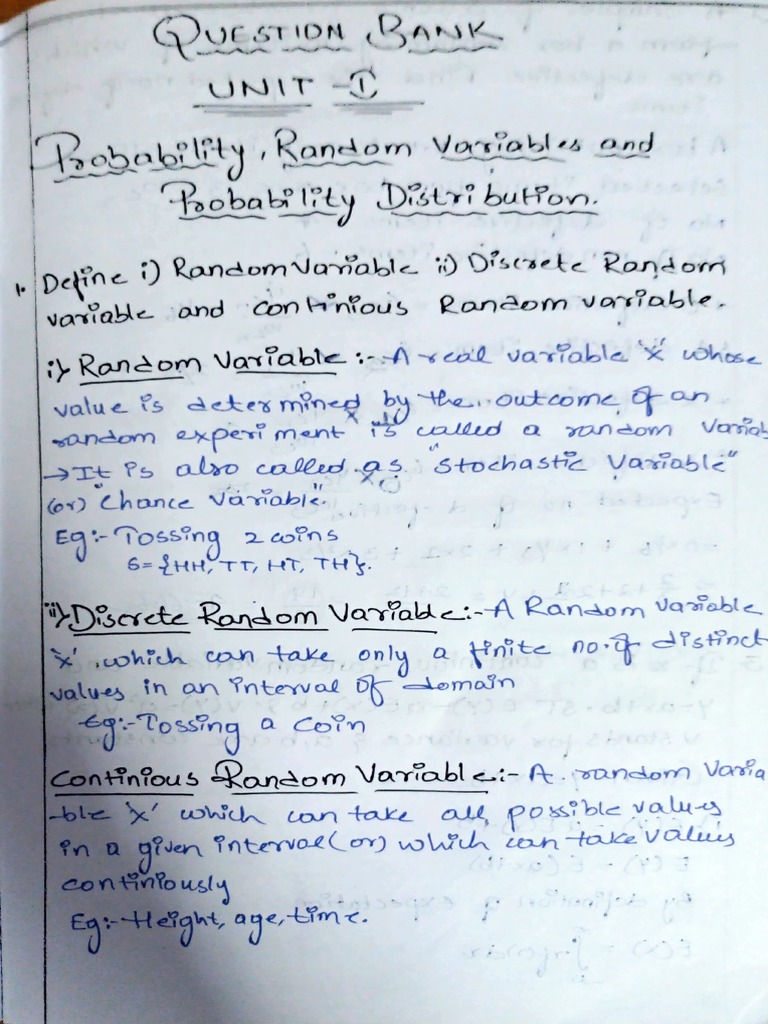 QUESTION BANK
UNIT - I
Probability, Random Variables and
Probability Distribution.
1. Define i) Random Variable ii) Discrete Random
variable and continious Random variable.
i) Random Variable :- A real variable 'x' whose
value is determined by the outcome of an
random experiment is called a random Variab
→ It is also called as "Stochastic Variable"
(or) "Chance Variable".
Eg:- Tossing 2 coins
S= {HH, TT, HT, TH}.
ii) Discrete Random Variable :- A Random Variable
'x' which can take only a finite no. of distinct
values in an interval of domain
Eg:- Tossing a coin
Continious Random Variable :- A random Varia
-ble 'x' which can take all possible values
in a given interval (or) which can take values
continiously
Eg:- Height, age, time.